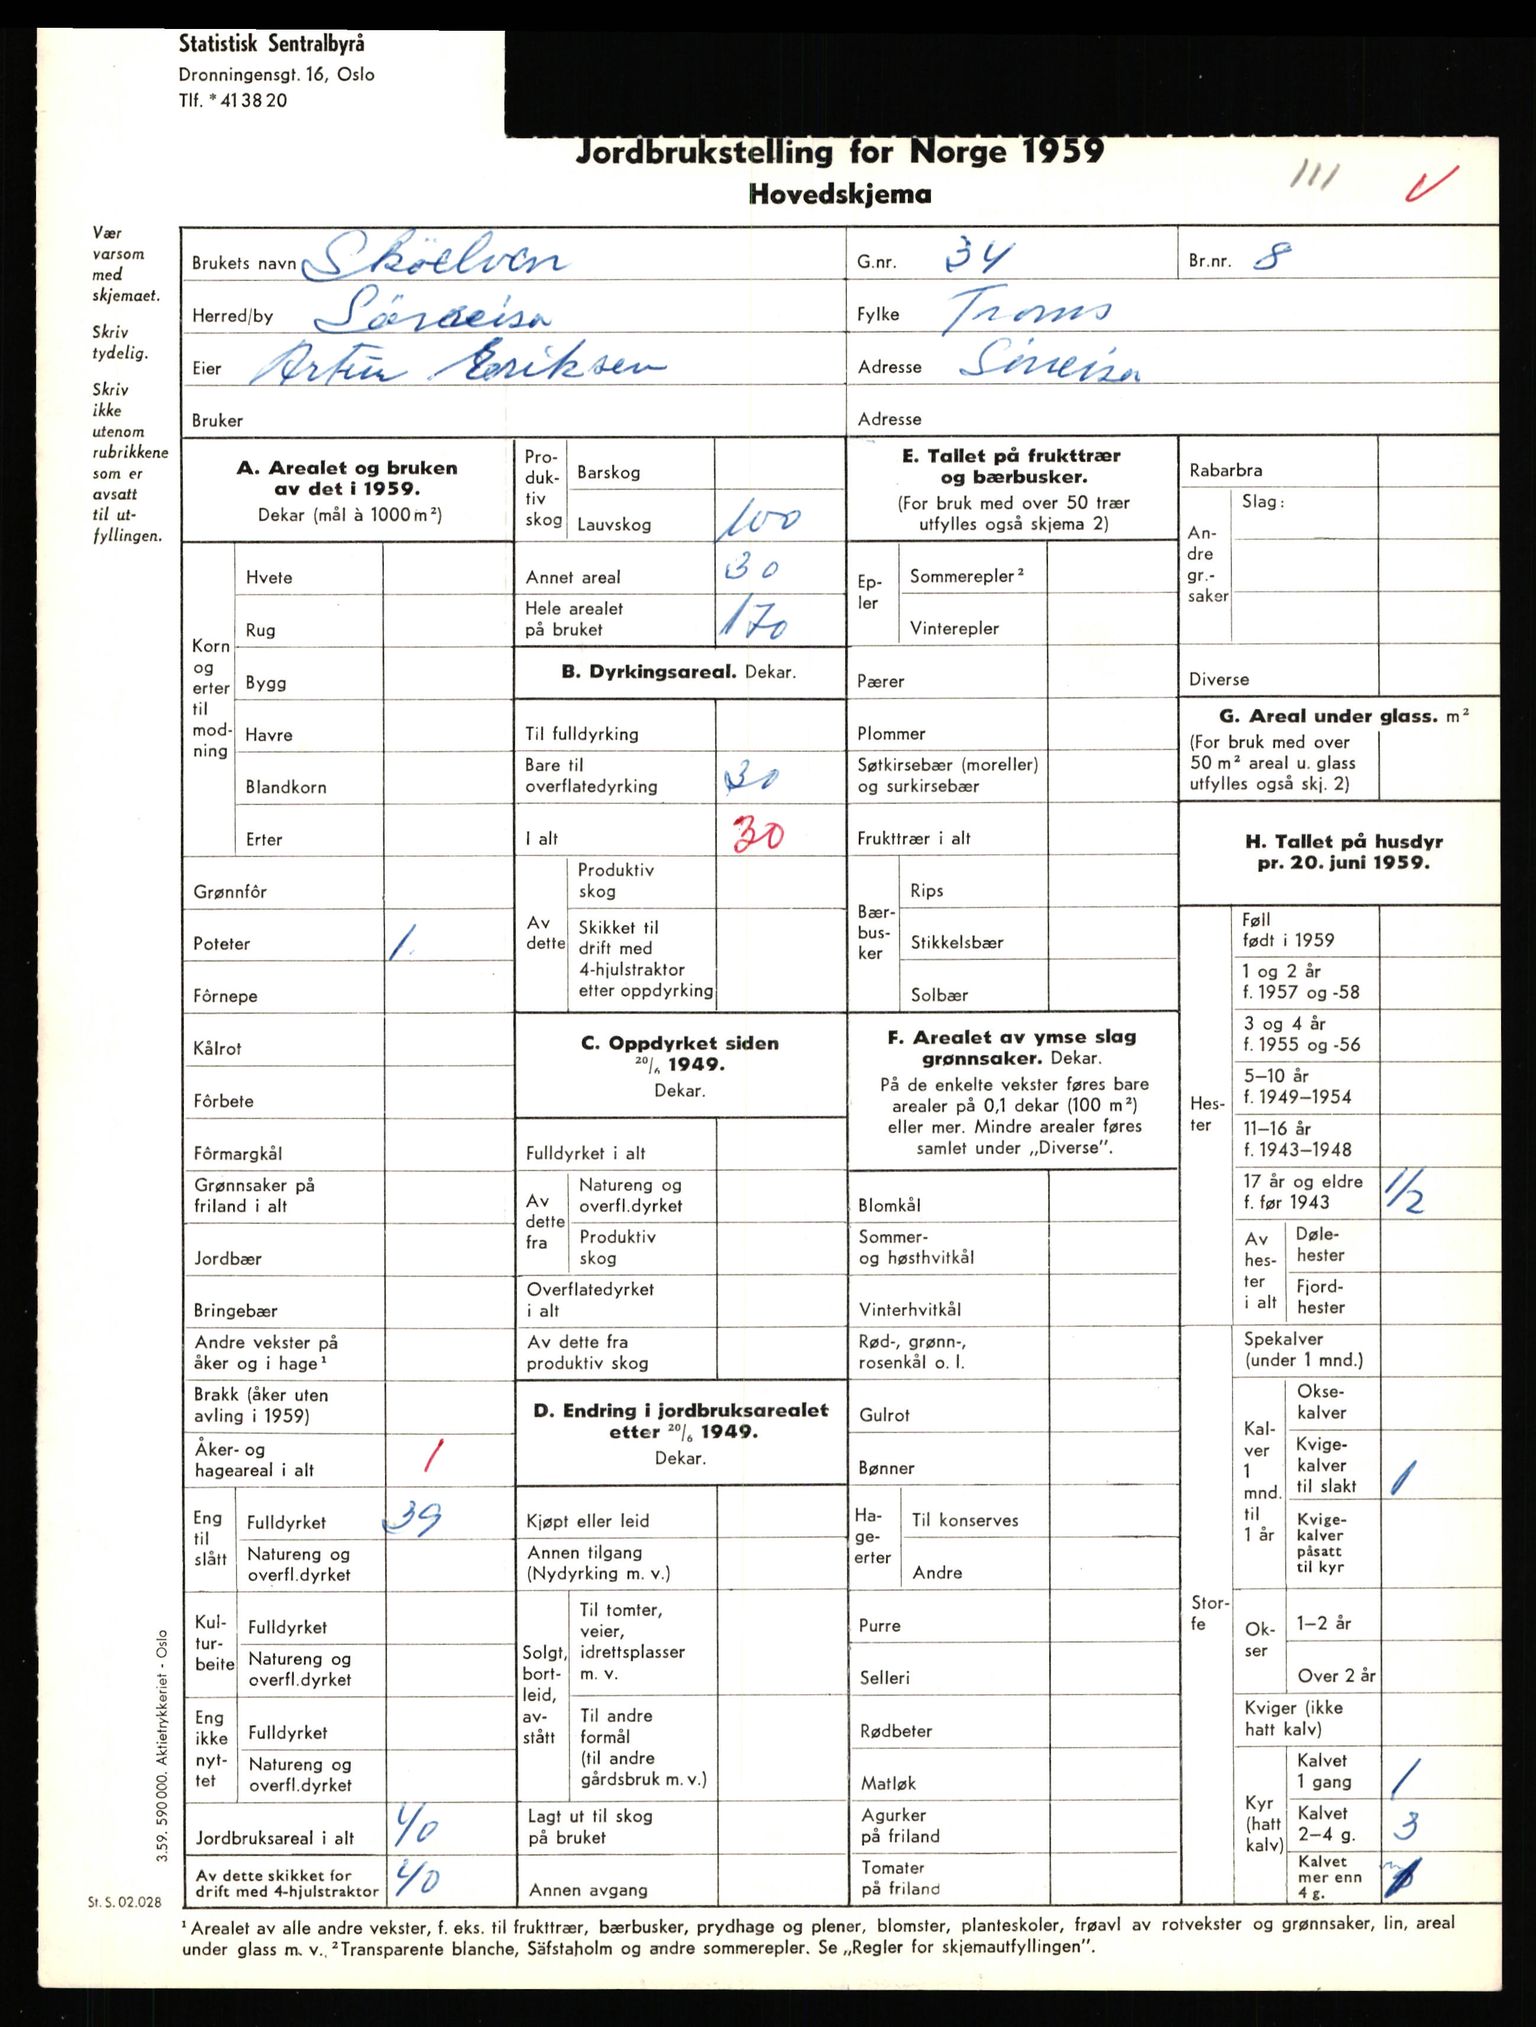 Statistisk Sentralbyrå
Dronningensgt. 16, Oslo
Tlf. * 41 38 20
Jordbrukstelling for Norge 1959
Hovedskjema
111
Vær
varsom
med
skjemaet.
Skriv
tydelig.
Skriv
ikke
utenom
rubrikkene
som er
avsatt
til ut-
fyllingen.
Brukets navn Sköelven
G.nr. 34
Br.nr. 8
Herred/by Sörreisa
Fylke Troms
Eier Artur Eriksen
Adresse Sörreisa
Bruker
Adresse
A. Arealet og bruken
av det i 1959.
Dekar (mål à 1000 m²)
Korn
og
erter
til
mod-
ning
Hvete
Rug
Bygg
Havre
Blandkorn
Erter
Grønnfôr
Poteter 1
Fôrnepe
Kålrot
Fôrbete
Fôrmargkål
Grønnsaker på
friland i alt
Jordbær
Bringebær
Andre vekster på
åker og i hage¹
Brakk (åker uten
avling i 1959)
Åker- og
hageareal i alt 1
Eng
til
slått
Fulldyrket 39
Natureng og
overfl.dyrket
Kul-
tur-
beite
Fulldyrket
Natureng og
overfl.dyrket
Eng
ikke
nyt-
tet
Fulldyrket
Natureng og
overfl.dyrket
Jordbruksareal i alt 40
Av dette skikket for
drift med 4-hjulstraktor 40
Pro-
duk-
tiv
skog
Barskog
Lauvskog 100
Annet areal 30
Hele arealet
på bruket 170
B. Dyrkingsareal. Dekar.
Til fulldyrking
Bare til
overflatedyrking 30
I alt 30
Av
dette
Produktiv
skog
Skikket til
drift med
4-hjulstraktor
etter oppdyrking
C. Oppdyrket siden
20/6 1949.
Dekar.
Fulldyrket i alt
Av
dette
fra
Natureng og
overfl.dyrket
Produktiv
skog
Overflatedyrket
i alt
Av dette fra
produktiv skog
D. Endring i jordbruksarealet
etter 20/6 1949.
Dekar.
Kjøpt eller leid
Annen tilgang
(Nydyrking m. v.)
Solgt,
bort-
leid,
av-
stått
Til tomter,
veier,
idrettsplasser
m. v.
Til andre
formål
(til andre
gårdsbruk m. v.)
Lagt ut til skog
på bruket
Annen avgang
E. Tallet på frukttrær
og bærbusker.
(For bruk med over 50 trær
utfylles også skjema 2)
Ep-
ler
Sommerepler²
Vinterepler
Pærer
Plommer
Søtkirsebær (moreller)
og surkirsebær
Frukttrær i alt
Bær-
bus-
ker
Rips
Stikkelsbær
Solbær
F. Arealet av ymse slag
grønnsaker. Dekar.
På de enkelte vekster føres bare
arealer på 0,1 dekar (100 m²)
eller mer. Mindre arealer føres
samlet under „Diverse”.
Blomkål
Sommer-
og høsthvitkål
Vinterhvitkål
Rød-, grønn-,
rosenkål o. l.
Gulrot
Bønner
Ha-
ge-
erter
Til konserves
Andre
Purre
Selleri
Rødbeter
Matløk
Agurker
på friland
Tomater
på friland
Rabarbra
An-
dre
gr.-
saker
Slag:
Diverse
G. Areal under glass. m²
(For bruk med over
50 m² areal u. glass
utfylles også skj. 2)
H. Tallet på husdyr
pr. 20. juni 1959.
Hes-
ter
Føll
født i 1959
1 og 2 år
f. 1957 og -58
3 og 4 år
f. 1955 og -56
5–10 år
f. 1949–1954
11–16 år
f. 1943–1948
17 år og eldre
f. før 1943 1/2
Av
hes-
ter
i alt
Døle-
hester
Fjord-
hester
Stor-
fe
Spekalver
(under 1 mnd.)
Kal-
ver
1
mnd.
til
1 år
Okse-
kalver
Kvige-
kalver
til slakt 1
Kvige-
kalver
påsatt
til kyr
Ok-
ser
1–2 år
Over 2 år
Kviger (ikke
hatt kalv)
Kyr
(hatt
kalv)
Kalvet
1 gang 1
Kalvet
2–4 g. 3
Kalvet
mer enn
4 g.
3.59. 590 000. Aktietrykkeriet - Oslo
St. S. 02.028
¹ Arealet av alle andre vekster, f. eks. til frukttrær, bærbusker, prydhage og plener, blomster, planteskoler, frøavl av rotvekster og grønnsaker, lin, areal
under glass m. v. ² Transparente blanche, Säfstaholm og andre sommerepler. Se „Regler for skjemautfyllingen”.